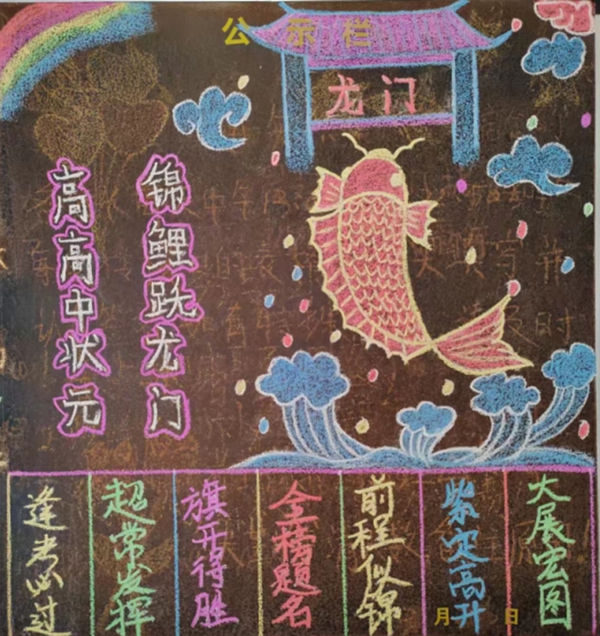 公示栏
龙门
锦鲤跃龙门
高高中状元
大展宏图
紫定高升
前程似锦
金榜题名
旗开得胜
超常发挥
逢考必过
月 日